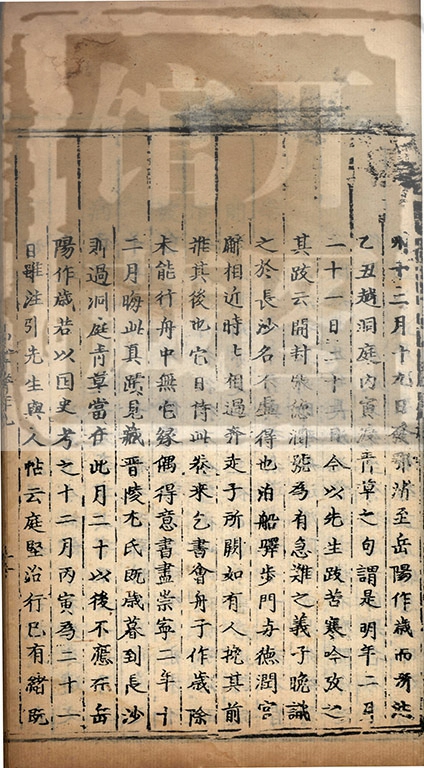 十二月十九日發鄂渚至岳陽作歲而
乙丑越洞庭丙寅渡青草之句謂是明年二月
二十一日二十日今以先生跋苦寒吟攷之
其跋云開封張德潤號為有急難之義予晚識
之於長沙名不虛得也泊船驛步門与德潤官
廨相近時〻相過奔走予所闕如有人挽其前
推其後也它日侍此卷來乞書會舟子作歲除
未能行舟中無它緣偶得意書盡崇寧二年十
二月晦此真蹟見藏晉陵尤氏既歲暮到長沙
則過洞庭青草當在此月二十以後不應在岳
陽作歲若以囯史考之十二月丙寅為二十一
日雖注引先生與人帖云庭堅治行已有緒既